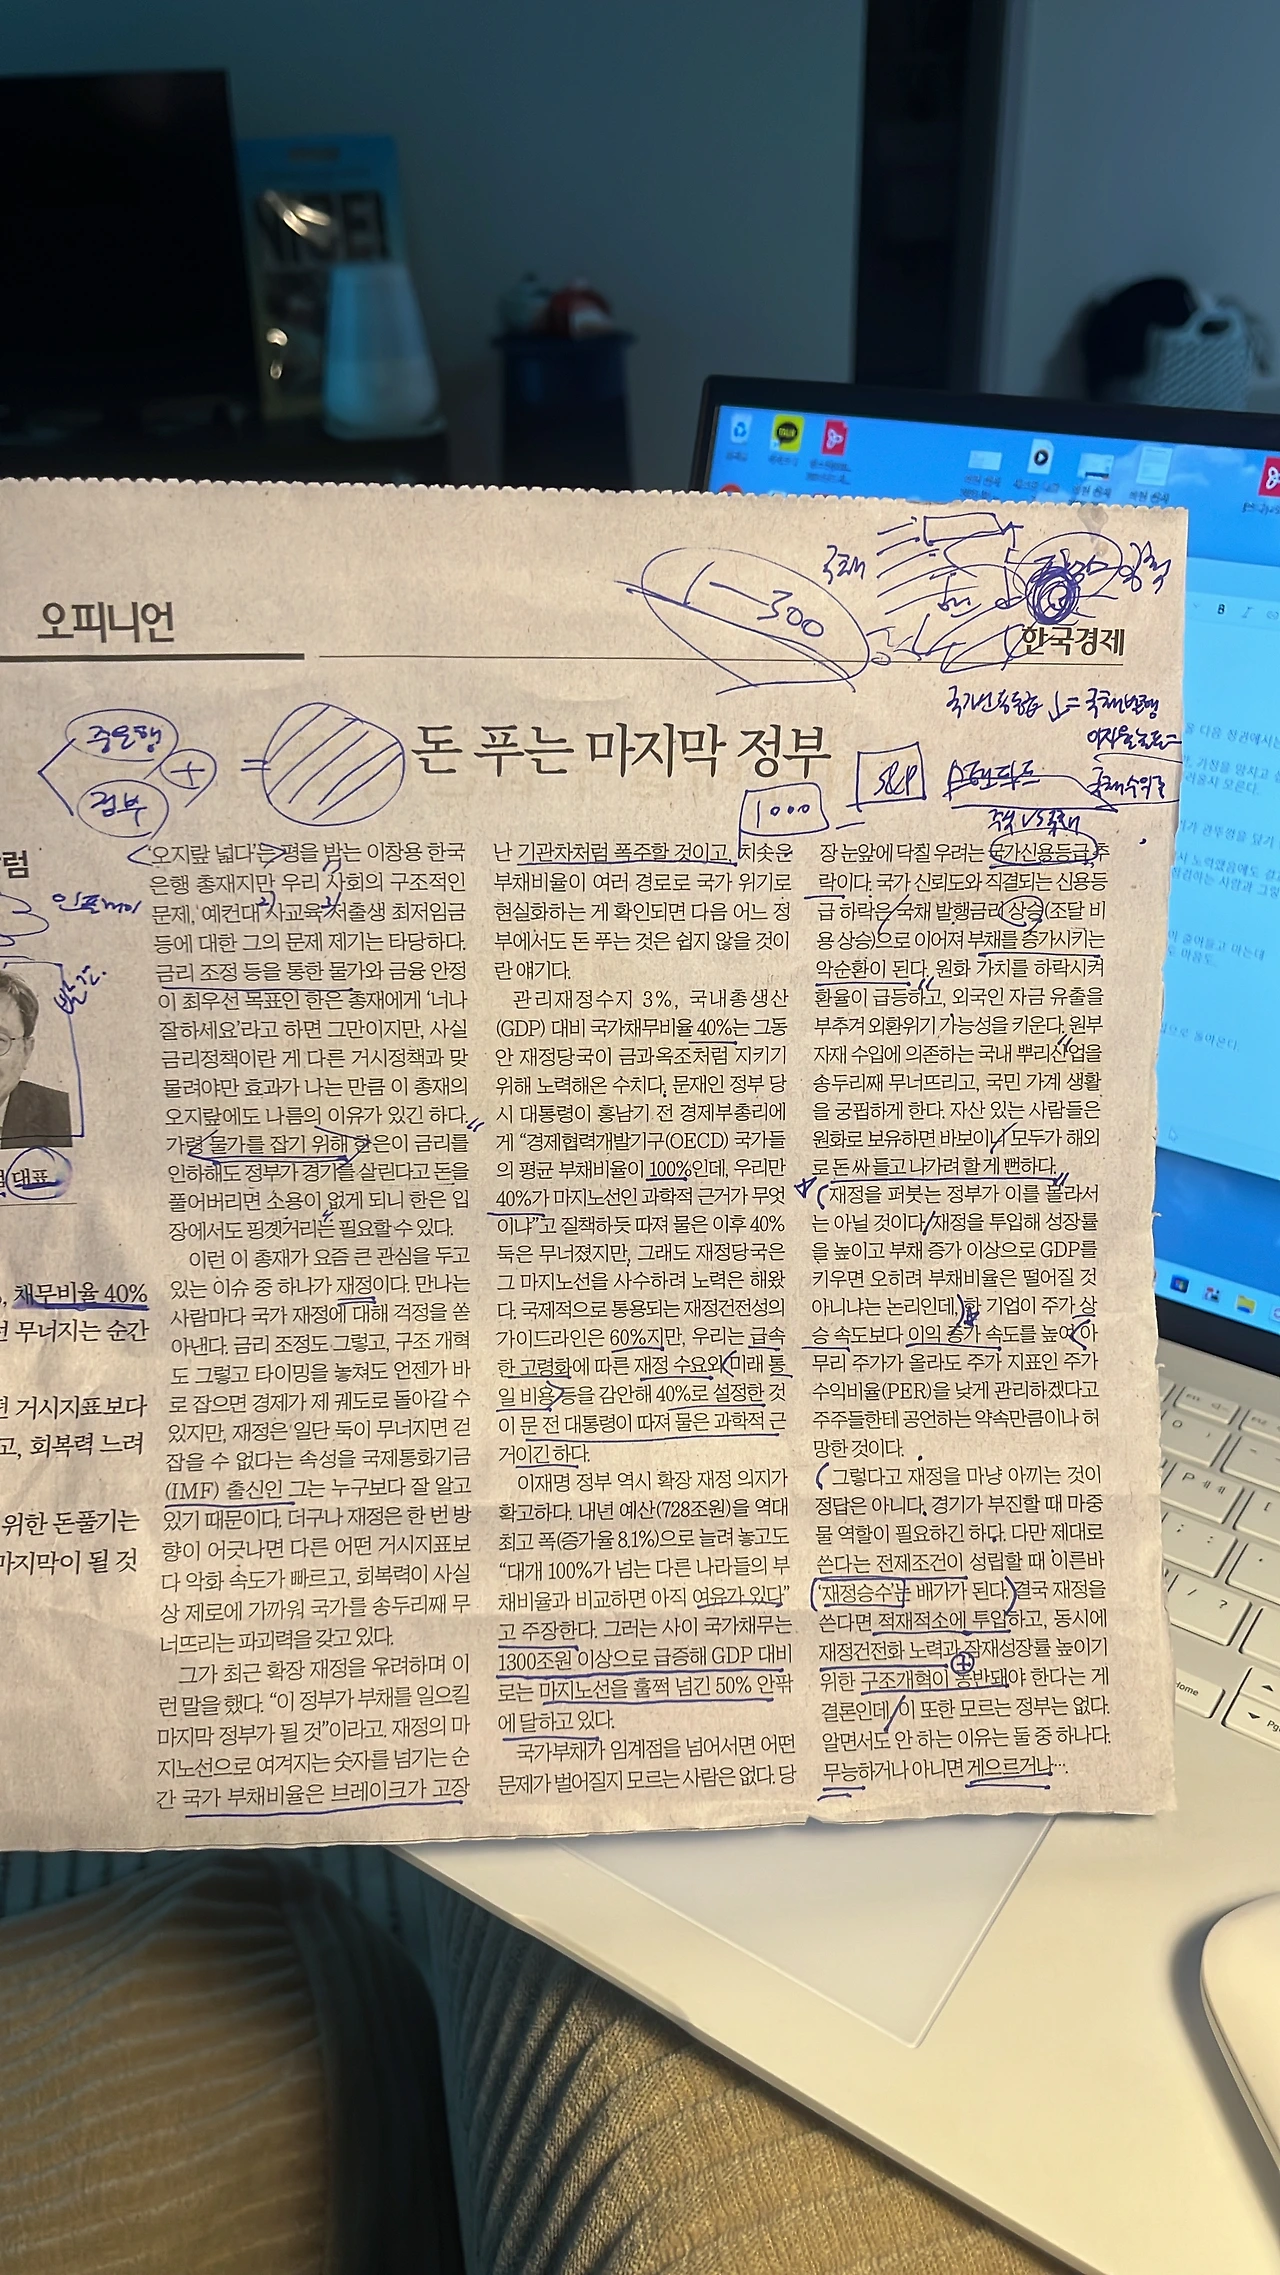 오피니언
한국경제
국채
1-300
돈 푸는 마지막 정부
중은행
정부
+
=
1000
S&P
국채발행
주식 VS 국채
럼
대표
, 채무비율 40%
무너지는 순간
거시지표보다
고, 회복력 느려
위한 돈풀기는
마지막이 될 것
‘오지랖 넓다’는 평을 받는 이창용 한국
은행 총재지만 우리 사회의 구조적인
문제, 예컨대 사교육 저출생 최저임금
등에 대한 그의 문제 제기는 타당하다.
금리 조정 등을 통한 물가와 금융 안정
이 최우선 목표인 한은 총재에게 ‘너나
잘하세요’라고 하면 그만이지만, 사실
금리정책이란 게 다른 거시정책과 맞
물려야만 효과가 나는 만큼 이 총재의
오지랖에도 나름의 이유가 있긴 하다.
가령 물가를 잡기 위해 한은이 금리를
인하해도 정부가 경기를 살린다고 돈을
풀어버리면 소용이 없게 되니 한은 입
장에서도 핑곗거리는 필요할 수 있다.
이런 이 총재가 요즘 큰 관심을 두고
있는 이슈 중 하나가 재정이다. 만나는
사람마다 국가 재정에 대해 걱정을 쏟
아낸다. 금리 조정도 그렇고, 구조 개혁
도 그렇고 타이밍을 놓쳐도 언젠가 바
로 잡으면 경제가 제 궤도로 돌아갈 수
있지만, 재정은 일단 둑이 무너지면 걷
잡을 수 없다는 속성을 국제통화기금
(IMF) 출신인 그는 누구보다 잘 알고
있기 때문이다. 더구나 재정은 한 번 방
향이 어긋나면 다른 어떤 거시지표보
다 악화 속도가 빠르고, 회복력이 사실
상 제로에 가까워 국가를 송두리째 무
너뜨리는 파괴력을 갖고 있다.
그가 최근 확장 재정을 우려하며 이
런 말을 했다. “이 정부가 부채를 일으킬
마지막 정부가 될 것”이라고. 재정의 마
지노선으로 여겨지는 숫자를 넘기는 순
간 국가 부채비율은 브레이크가 고장
난 기관차처럼 폭주할 것이고, 치솟은
부채비율이 여러 경로로 국가 위기로
현실화하는 게 확인되면 다음 어느 정
부에서도 돈 푸는 것은 쉽지 않을 것이
란 얘기다.
관리재정수지 3%, 국내총생산
(GDP) 대비 국가채무비율 40%는 그동
안 재정당국이 금과옥조처럼 지키기
위해 노력해온 수치다. 문재인 정부 당
시 대통령이 홍남기 전 경제부총리에
게 “경제협력개발기구(OECD) 국가들
의 평균 부채비율이 100%인데, 우리만
40%가 마지노선인 과학적 근거가 무엇
이냐”고 질책하듯 따져 물은 이후 40%
둑은 무너졌지만, 그래도 재정당국은
그 마지노선을 사수하려 노력은 해왔
다. 국제적으로 통용되는 재정건전성의
가이드라인은 60%지만, 우리는 급속
한 고령화에 따른 재정 수요와 미래 통
일 비용 등을 감안해 40%로 설정한 것
이 문 전 대통령이 따져 물은 과학적 근
거이긴 하다.
이재명 정부 역시 확장 재정 의지가
확고하다. 내년 예산(728조원)을 역대
최고 폭(증가율 8.1%)으로 늘려 놓고도
“대개 100%가 넘는 다른 나라들의 부
채비율과 비교하면 아직 여유가 있다”
고 주장한다. 그러는 사이 국가채무는
1300조원 이상으로 급증해 GDP 대비
로는 마지노선을 훌쩍 넘긴 50% 안팎
에 달하고 있다.
국가부채가 임계점을 넘어서면 어떤
문제가 벌어질지 모르는 사람은 없다. 당
장 눈앞에 닥칠 우려는 국가신용등급 추
락이다. 국가 신뢰도와 직결되는 신용등
급 하락은 국채 발행금리 상승(조달 비
용 상승)으로 이어져 부채를 증가시키는
악순환이 된다. 원화 가치를 하락시켜
환율이 급등하고, 외국인 자금 유출을
부추겨 외환위기 가능성을 키운다. 원부
자재 수입에 의존하는 국내 뿌리산업을
송두리째 무너뜨리고, 국민 가계 생활
을 궁핍하게 한다. 자산 있는 사람들은
원화로 보유하면 바보이니 모두가 해외
로 돈 싸 들고 나가려 할 게 뻔하다.
재정을 퍼붓는 정부가 이를 몰라서
는 아닐 것이다. 재정을 투입해 성장률
을 높이고 부채 증가 이상으로 GDP를
키우면 오히려 부채비율은 떨어질 것
아니냐는 논리인데, 한 기업이 주가 상
승 속도보다 이익 증가 속도를 높여 아
무리 주가가 올라도 주가 지표인 주가
수익비율(PER)을 낮게 관리하겠다고
주주들한테 공언하는 약속만큼이나 허
망한 것이다.
그렇다고 재정을 마냥 아끼는 것이
정답은 아니다. 경기가 부진할 때 마중
물 역할이 필요하긴 하다. 다만 제대로
쓴다는 전제조건이 성립할 때 이른바
‘재정승수’는 배가가 된다. 결국 재정을
쓴다면 적재적소에 투입하고, 동시에
재정건전화 노력과 잠재성장률 높이기
위한 구조개혁이 동반돼야 한다는 게
결론인데, 이 또한 모르는 정부는 없다.
알면서도 안 하는 이유는 둘 중 하나다.
무능하거나 아니면 게으르거나…
Home